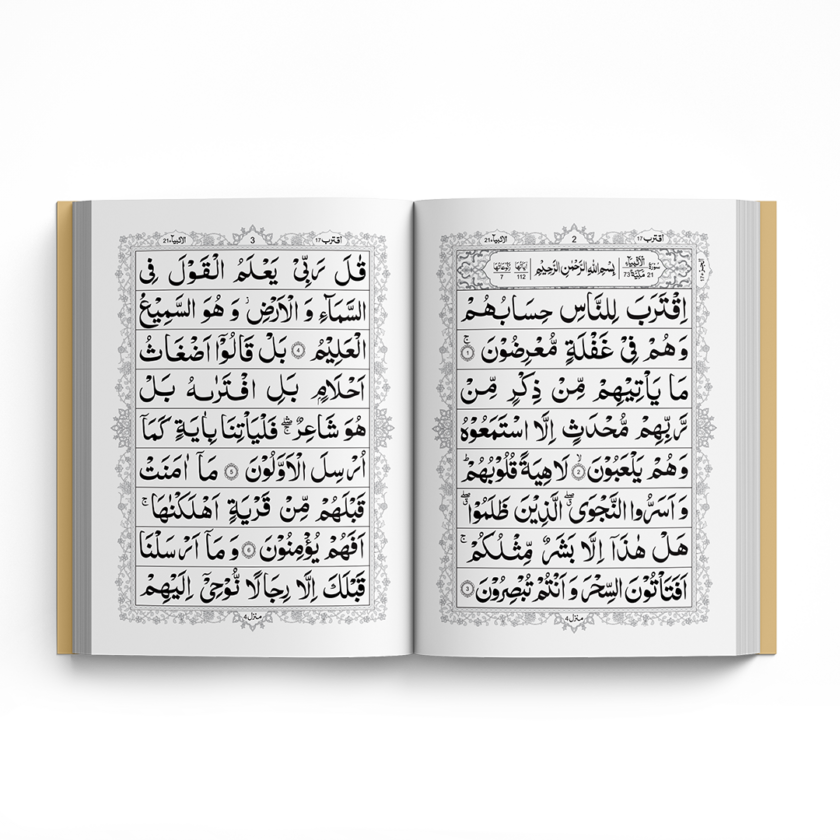 اقترب ١٧
2
الانبيآء ٢١
سورة 21
الانبيآء
مكية 73
بسم الله الرحمن الرحيم
اياتها 112
ركوعاتها 7
اِقْتَرَبَ لِلنَّاسِ حِسَابُهُمْ
وَهُمْ فِيْ غَفْلَةٍ مُّعْرِضُوْنَ ۚ ①
مَا يَاْتِيْهِمْ مِّنْ ذِكْرٍ مِّنْ
رَّبِّهِمْ مُّحْدَثٍ اِلَّا اسْتَمَعُوْهُ
وَهُمْ يَلْعَبُوْنَ ۙ ② لَاهِيَةً قُلُوْبُهُمْ ؕ
وَ اَسَرُّوا النَّجْوَى ۖۗ الَّذِيْنَ ظَلَمُوْا ۖۗ
هَلْ هٰذَاۤ اِلَّا بَشَرٌ مِّثْلُكُمْ ۚ
اَفَتَاْتُوْنَ السِّحْرَ وَ اَنْتُمْ تُبْصِرُوْنَ ③
منزل 4
اقترب 17
3
الانبيآء 21
قٰلَ رَبِّيْ يَعْلَمُ الْقَوْلَ فِي
السَّمَآءِ وَ الْاَرْضِ ؗ وَ هُوَ السَّمِيْعُ
الْعَلِيْمُ ④ بَلْ قَالُوْۤا اَضْغَاثُ
اَحْلَامٍۭ بَلِ افْتَرٰىهُ بَلْ
هُوَ شَاعِرٌ ۖۚ فَلْيَاْتِنَا بِاٰيَةٍ كَمَاۤ
اُرْسِلَ الْاَوَّلُوْنَ ⑤ مَاۤ اٰمَنَتْ
قَبْلَهُمْ مِّنْ قَرْيَةٍ اَهْلَكْنٰهَا ۚ
اَفَهُمْ يُؤْمِنُوْنَ ⑥ وَ مَاۤ اَرْسَلْنَا
قَبْلَكَ اِلَّا رِجَالًا نُّوْحِيْۤ اِلَيْهِمْ
منزل 4